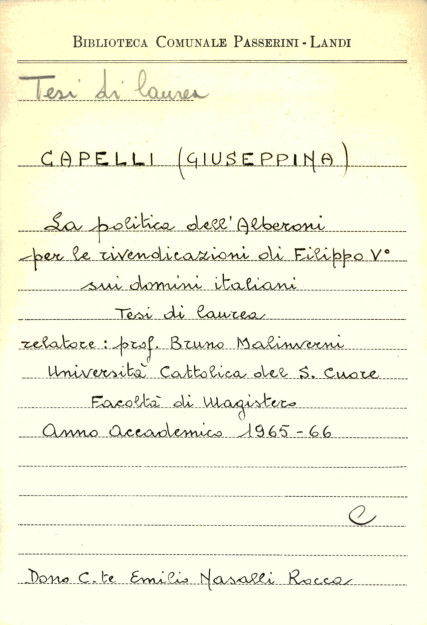 BIBLIOTECA COMUNALE PASSERINI - LANDI
Tesi di laurea
CAPELLI (GIUSEPPINA)
La politica dell'Alberoni
per le rivendicazioni di Filippo V°
sui domini italiani
Tesi di laurea
relatore: prof. Bruno Malinverni
Università Cattolica del S. Cuore
Facoltà di Magistero
Anno Accademico 1965-66
C
Dono C.te Emilio Nasalli Rocca